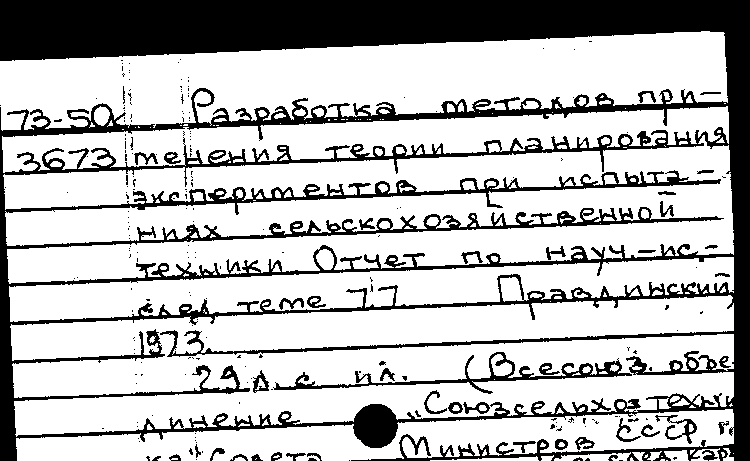 73-50к Разработка методов при-
3673 менения теории планирования
экспериментов при испыта-
ниях сельскохозяйственной
техники. Отчет по науч.-ис.-
след. теме 7.7 Правдинский,
1973.
29 л. с ил. (Всесоюз. объе-
динение „Союзсельхозтехни
ка" Совета Министров СССР.